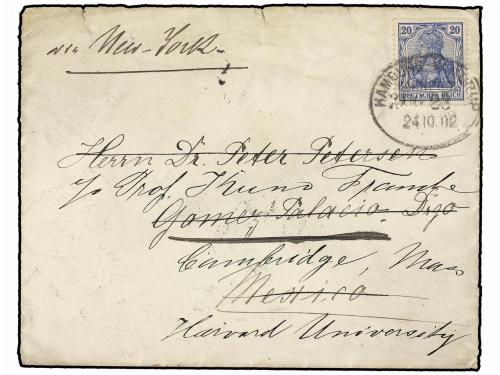 via New-York.
20 20
DEUTSCHES REICH
24 10. 02
Herrn Dr. Peter Petersen
c/o Prof. Kuno Francke
Gomez Palacio. Dgo
Cambridge, Mass
Mexico
Harvard University